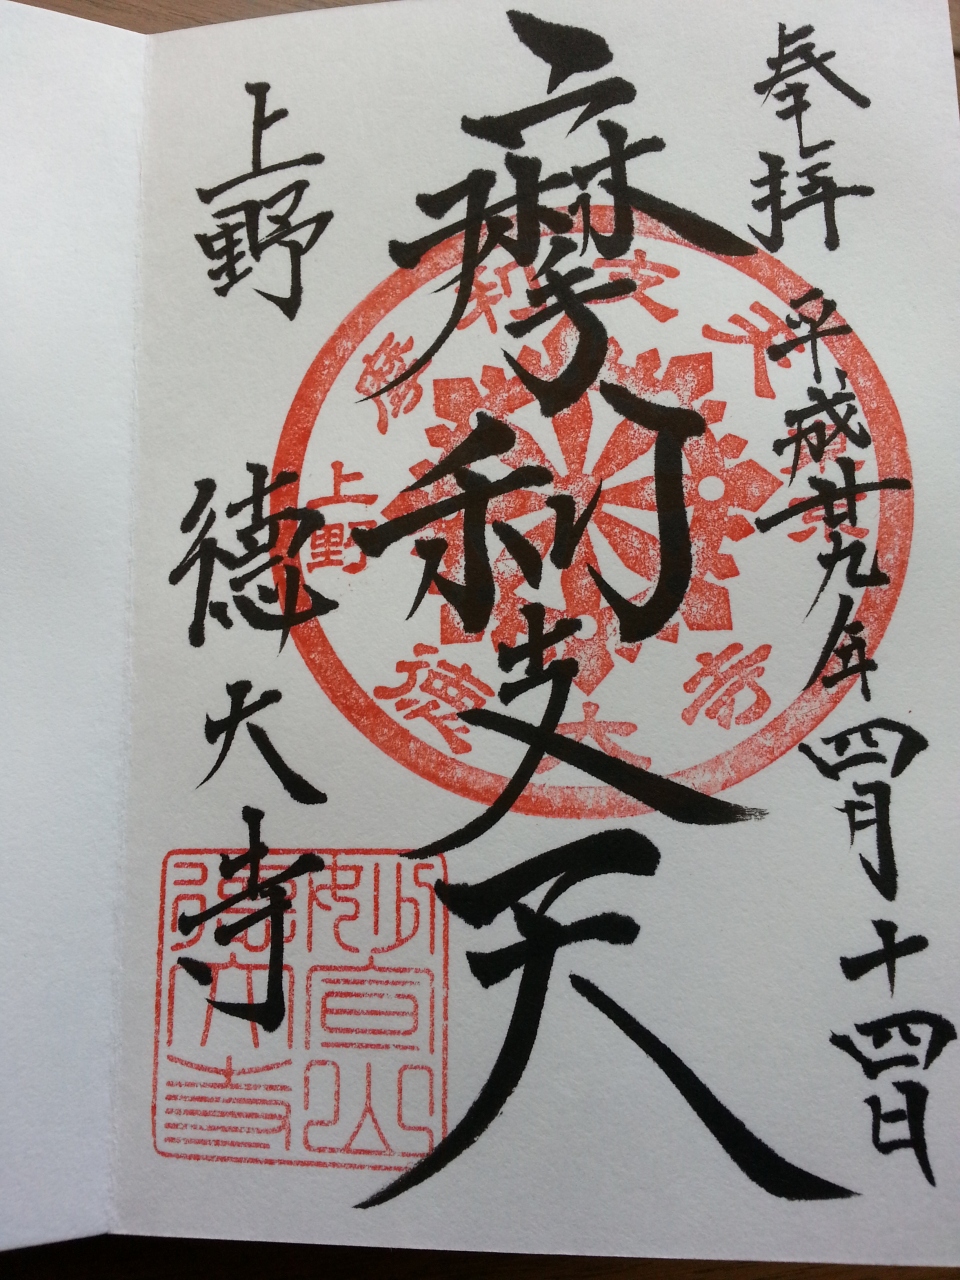 奉拝 平成廿九年四月十四日
摩利支天
上野 徳大寺
摩利支天
上野
徳大寺
妙宣山
徳大寺